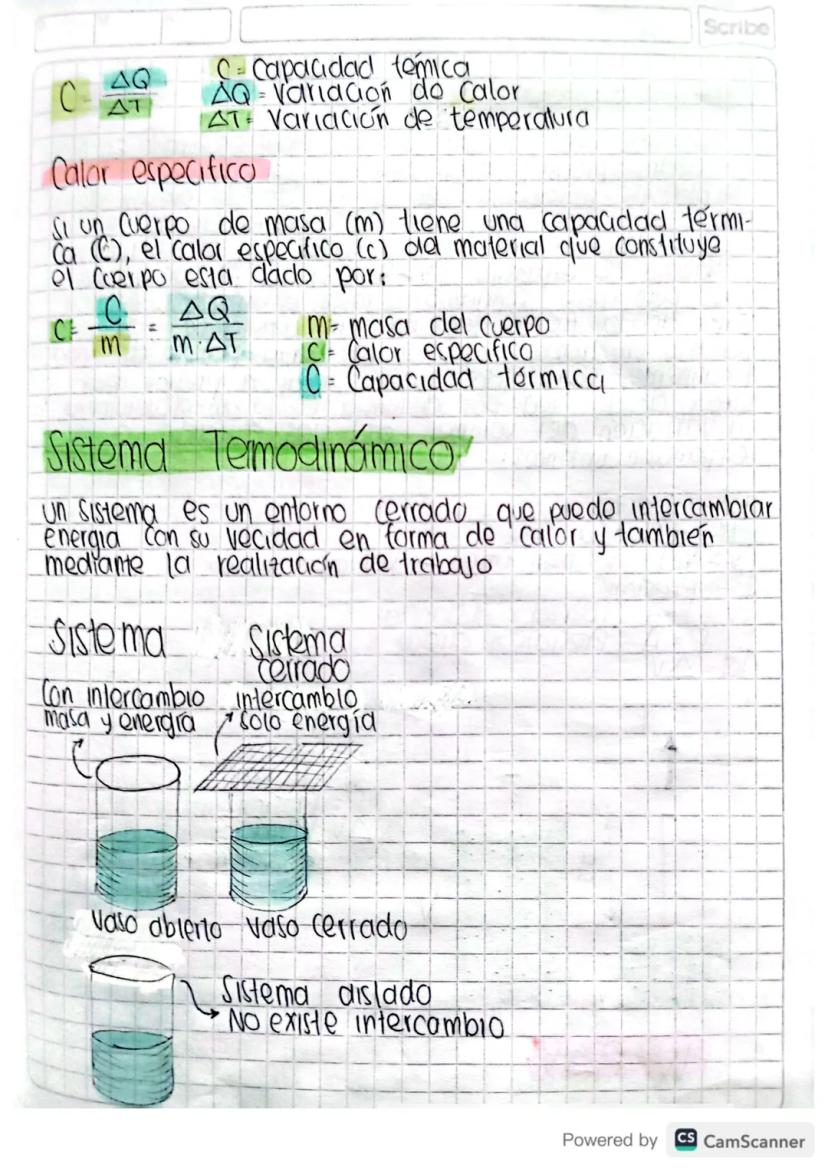 Scribe
C = ΔQ/ΔT
C = Capacidad témica
ΔQ = Variación de Calor
ΔT = Variación de temperatura
Calor especifico
Si un Cuerpo de masa (m) tiene una capacidad térmi-
ca (C), el Calor especifico (c) del material que constituye
el Cuerpo esta dado por:
C = C/m = ΔQ/m·ΔT
m = masa del cuerpo
C = Calor especifico
C = Capacidad térmica
Sistema Temodinámico
un sistema es un entorno cerrado que puede intercambiar
energia con su vecidad en forma de calor y también
mediante la realización de trabajo
Sistema
Con intercambio
masa y energía
Sistema
cerrado
intercambio
solo energía
Vaso abierto
Vaso cerrado
Sistema aislado
No existe intercambio
Powered by CS CamScanner